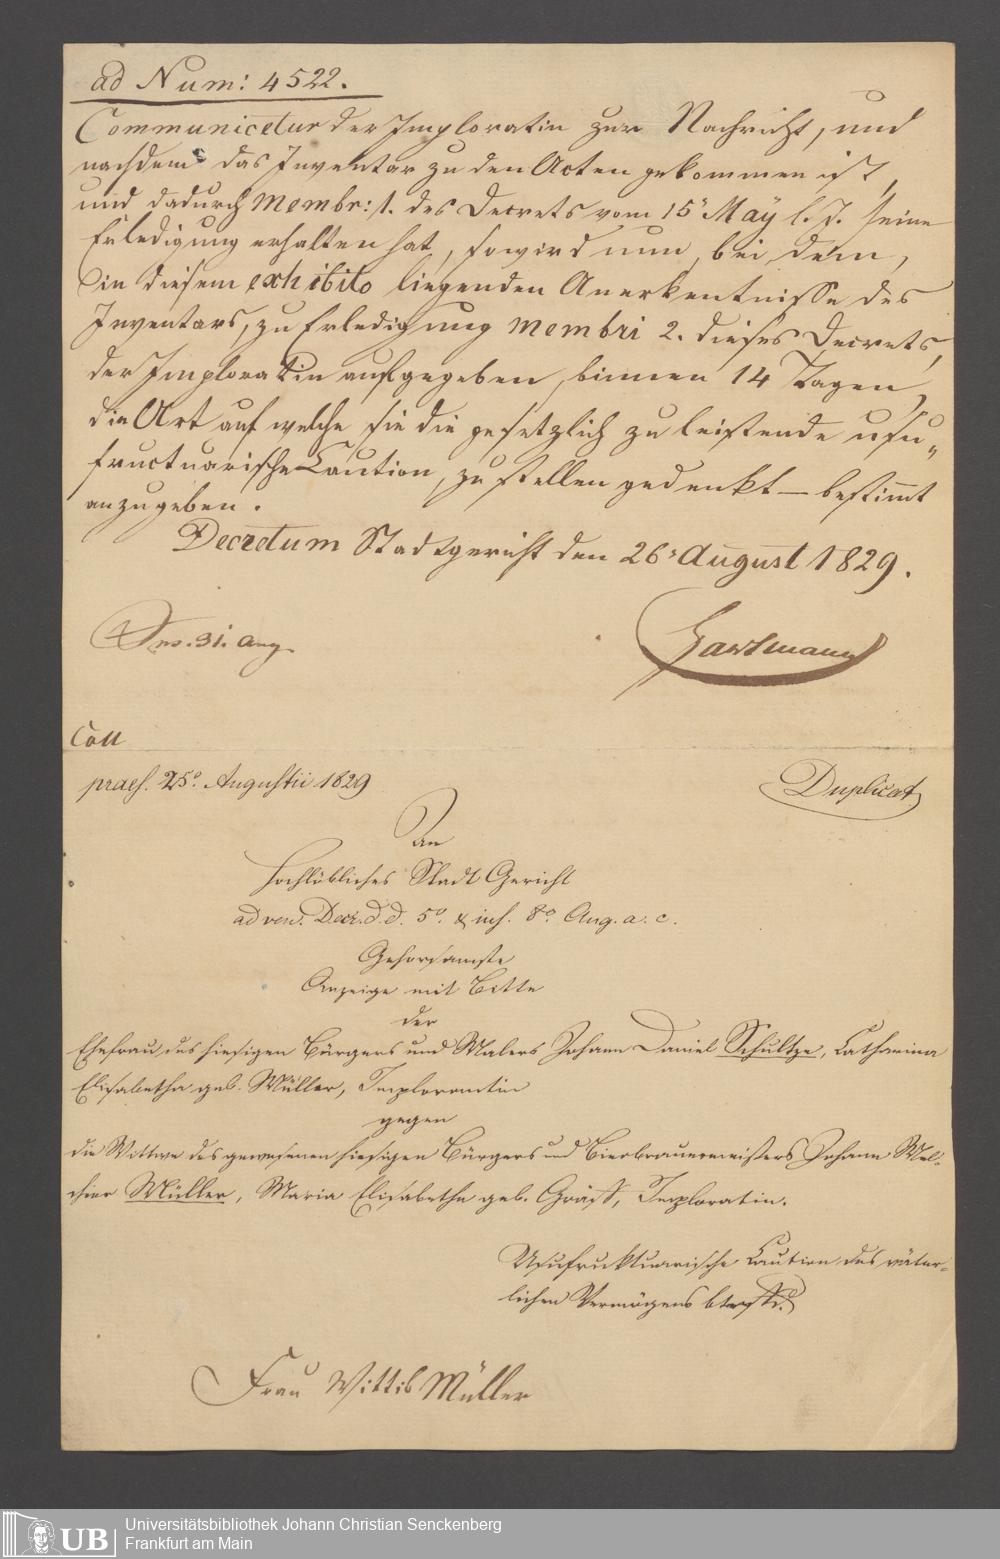 ad Num: 4522.
Communicetur der Imploratin zur Nachricht, und
nachdem das Inventar zu den Acten gekommen ist,
und dadurch Membr: 1. des Decrets vom 15n May l. J. seine
Erledigung erhalten hat, so wird nun, bei dem,
in diesem exhibito liegenden Anerkentnisse des
Inventars, zu Erledigung membri 2. dieses Decrets,
der Imploratin aufgegeben, binnen 14 Tagen,
die Art auf welche sie die gesetzlich zu leistende usu„
fructuarische Caution, zu stellen gedenkt — bestimt
anzugeben.
Decretum Stadtgericht den 26r August 1829.
Ins. 31. Aug.
Hartmann
Coll
praes. 25o. Augustii 1829
Duplicat
An
Hochlöbliches Stadt Gericht
ad ven. Decr. d. d. 5o. & ins. 8o Aug. a. c.
Gehorsamste
Anzeige mit Bitte
der
Ehefrau des hiesigen Bürgers und Malers Johann Daniel Schultze, Catharina
Elisabetha geb. Müller, Implorantin
gegen
die Wittwe des gewesenen hiesigen Bürgers und Bierbrauermeisters Johann Mel-
chior Müller, Maria Elisabetha geb. Gräff, Imploratin.
Usufruktuarische Caution des väter-
lichen Vermögens btreffd.
Frau Wittib Müller
UB
Universitätsbibliothek Johann Christian Senckenberg
Frankfurt am Main